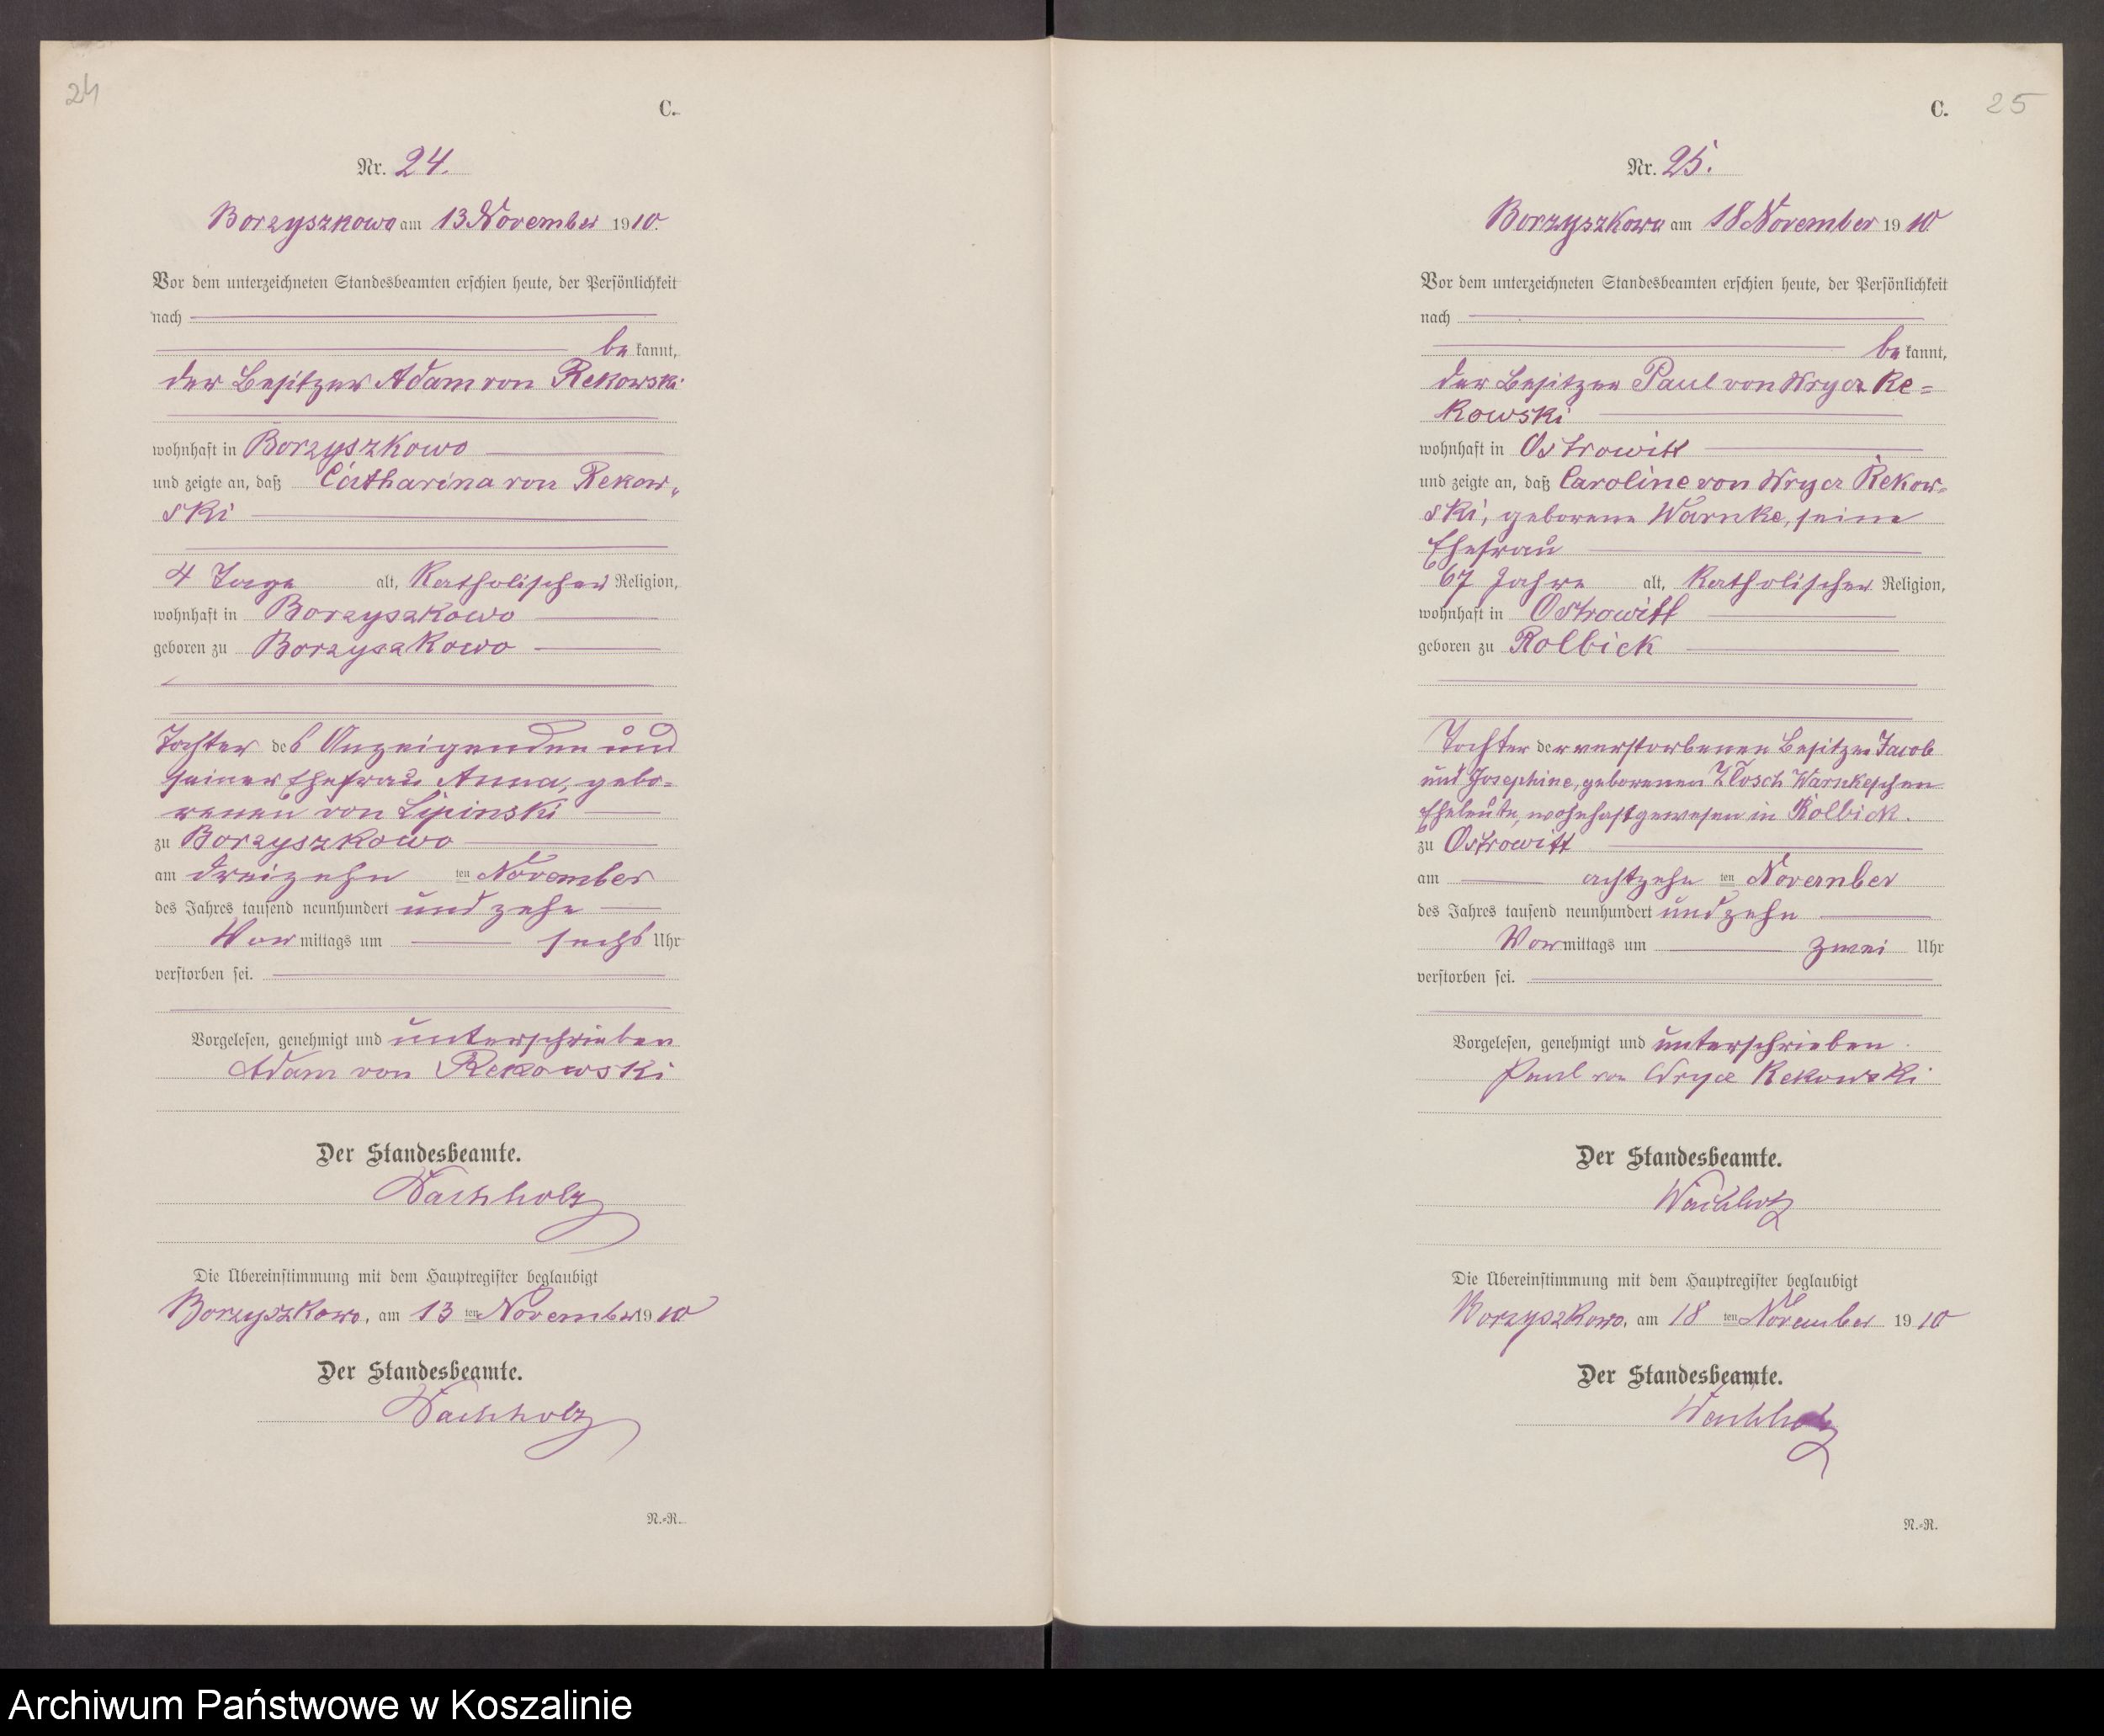 24
C.
Nr. 24.
Borzyszkowo am 13 November 1910.
Vor dem unterzeichneten Standesbeamten erschien heute, der Persönlichkeit
nach
be kannt,
der Besitzer Adam von Rekowski
wohnhaft in Borzyszkowo
und zeigte an, daß Catharina von Rekow-
ski
4 Tage alt, katholischer Religion,
wohnhaft in Borzyszkowo
geboren zu Borzyszkowo
Tochter des Anzeigenden und
seiner Ehefrau Anna, gebo-
renen von Lipinski
zu Borzyszkowo
am dreizehn ten November
des Jahres tausend neunhundert und zehn
Vor mittags um sechs Uhr
verstorben sei.
Vorgelesen, genehmigt und unterschrieben
Adam von Rekowski
Der Standesbeamte.
Wachholz
Die Übereinstimmung mit dem Hauptregister beglaubigt
Borzyszkowo, am 13 ten November 1910
Der Standesbeamte.
Wachholz
N.-R.
25
C.
Nr. 25.
Borzyszkowo am 18 November 1910
Vor dem unterzeichneten Standesbeamten erschien heute, der Persönlichkeit
nach
be kannt,
der Besitzer Paul von Wrycz Re=
kowski
wohnhaft in Ostrowitt
und zeigte an, daß Caroline von Wrycz Rekow=
ski, geborene Warnke, seine
Ehefrau
67 Jahre alt, katholischer Religion,
wohnhaft in Ostrowitt
geboren zu Rolbick
Tochter der verstorbenen Besitzer Jacob
und Josephine, geborenen Klosch Warnkeschen
Eheleute, wohnhaft gewesen in Rolbick.
zu Ostrowitt
am achtzehn ten November
des Jahres tausend neunhundert und zehn
Vor mittags um zwei Uhr
verstorben sei.
Vorgelesen, genehmigt und unterschrieben
Paul von Wrycz Rekowski
Der Standesbeamte.
Wachholz
Die Übereinstimmung mit dem Hauptregister beglaubigt
Borzyszkowo, am 18 ten November 1910
Der Standesbeamte.
Wachholz
N.-R.
Archiwum Państwowe w Koszalinie